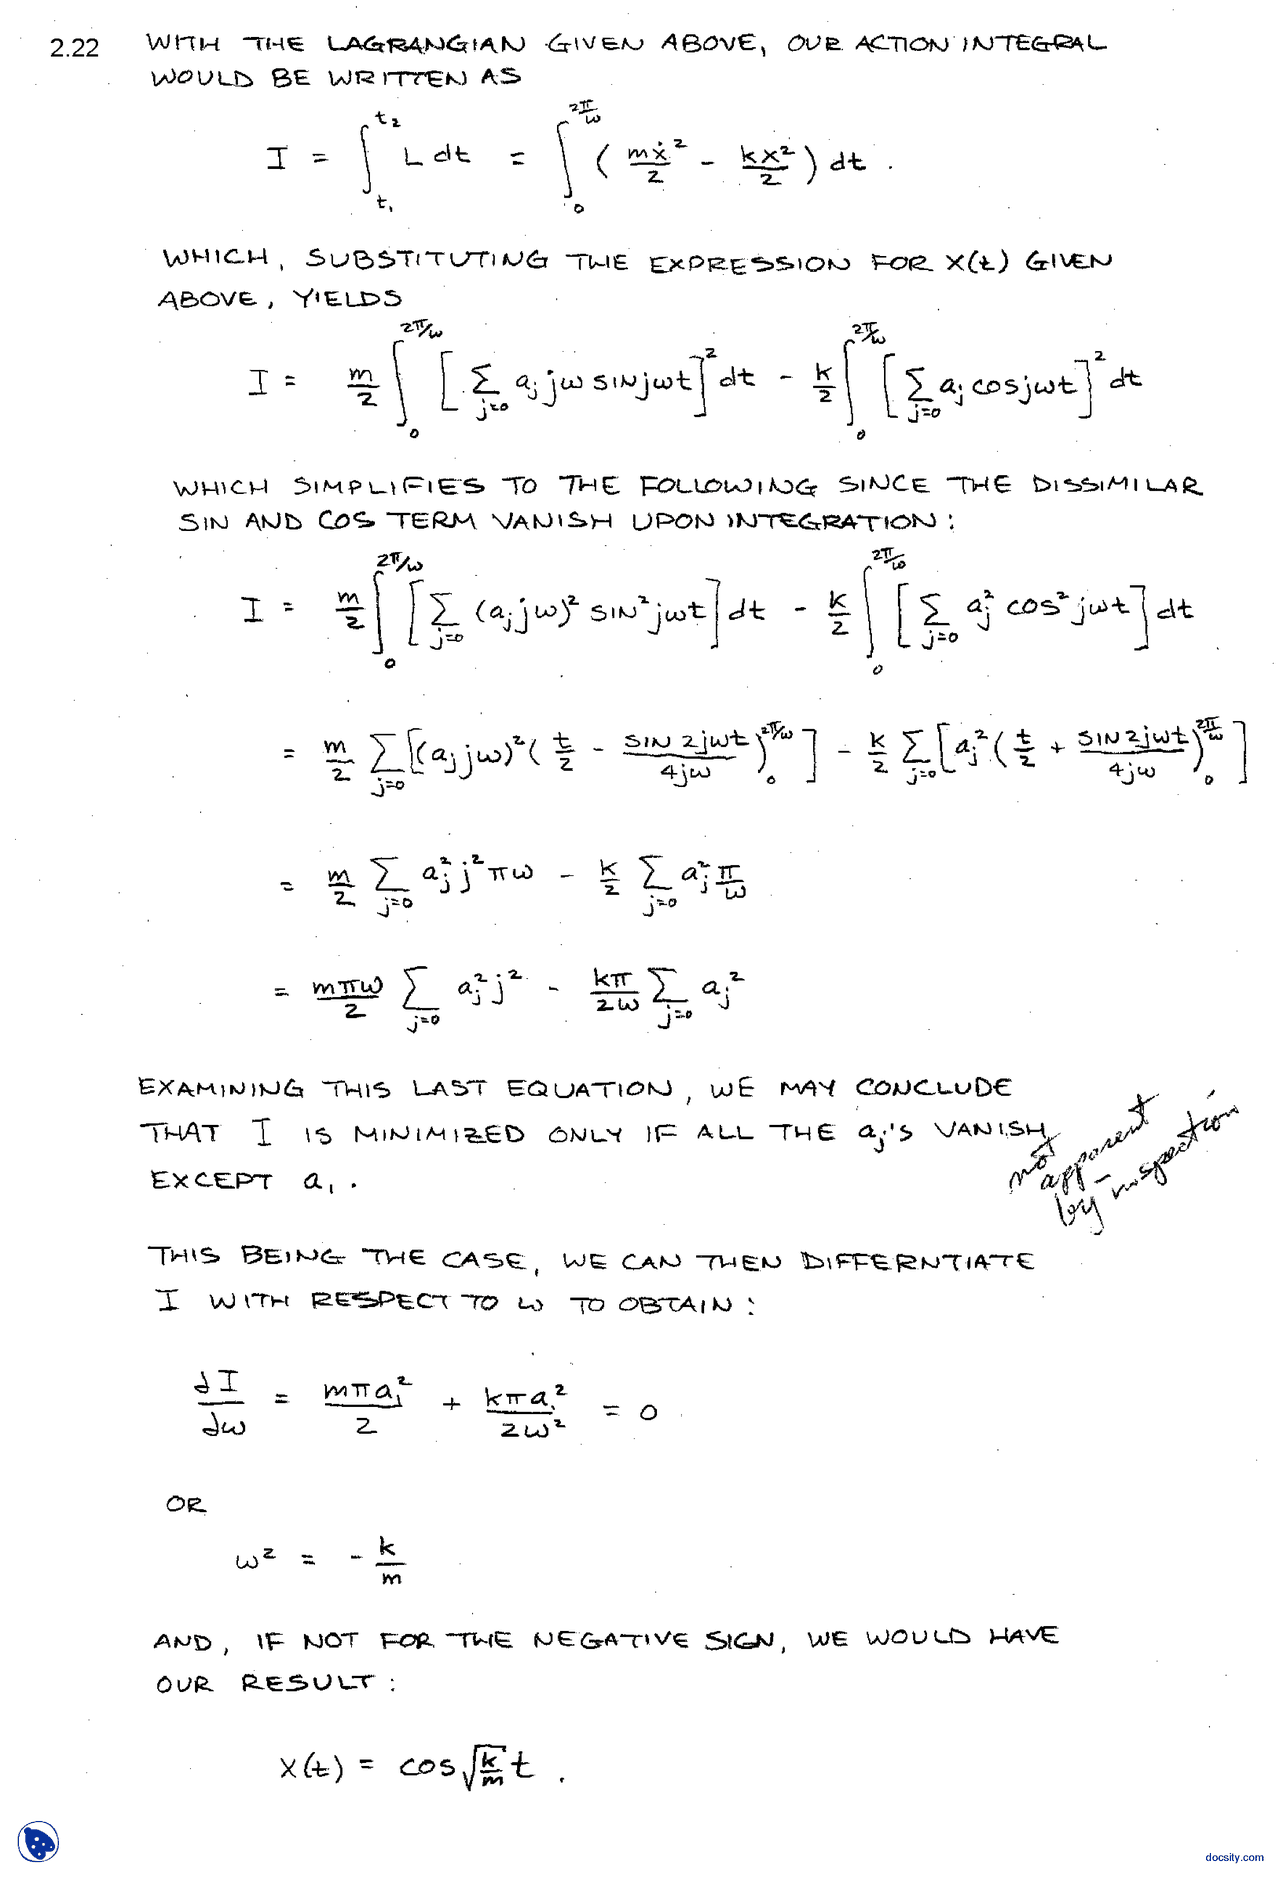 2.22 WITH THE LAGRANGIAN GIVEN ABOVE, OUR ACTION INTEGRAL
WOULD BE WRITTEN AS
I = ∫_{t₁}^{t₂} L dt = ∫_0^{2π/ω} ( mẋ²/2 - kx²/2 ) dt .
WHICH, SUBSTITUTING THE EXPRESSION FOR X(t) GIVEN
ABOVE, YIELDS
I = m/2 ∫_0^{2π/ω} [ ∑_{j=0} a_j jω SIN jωt ]² dt - k/2 ∫_0^{2π/ω} [ ∑_{j=0} a_j COS jωt ]² dt
WHICH SIMPLIFIES TO THE FOLLOWING SINCE THE DISSIMILAR
SIN AND COS TERM VANISH UPON INTEGRATION:
I = m/2 ∫_0^{2π/ω} [ ∑_{j=0} (a_j jω)² SIN² jωt ] dt - k/2 ∫_0^{2π/ω} [ ∑_{j=0} a_j² COS² jωt ] dt
= m/2 ∑_{j=0} [ (a_j jω)² ( t/2 - SIN 2jωt / 4jω )_0^{2π/ω} ] - k/2 ∑_{j=0} [ a_j² ( t/2 + SIN 2jωt / 4jω )_0^{2π/ω} ]
= m/2 ∑_{j=0} a_j² j² πω - k/2 ∑_{j=0} a_j² π/ω
= mπω/2 ∑_{j=0} a_j² j² - kπ/2ω ∑_{j=0} a_j²
EXAMINING THIS LAST EQUATION, WE MAY CONCLUDE
THAT I IS MINIMIZED ONLY IF ALL THE a_j'S VANISH
EXCEPT a₁.
not
apparent
by inspection
THIS BEING THE CASE, WE CAN THEN DIFFERNTIATE
I WITH RESPECT TO ω TO OBTAIN:
∂I/∂ω = mπa₁²/2 + kπa₁²/2ω² = 0
OR
ω² = - k/m
AND, IF NOT FOR THE NEGATIVE SIGN, WE WOULD HAVE
OUR RESULT:
X(t) = COS √(k/m) t .
docsity.com